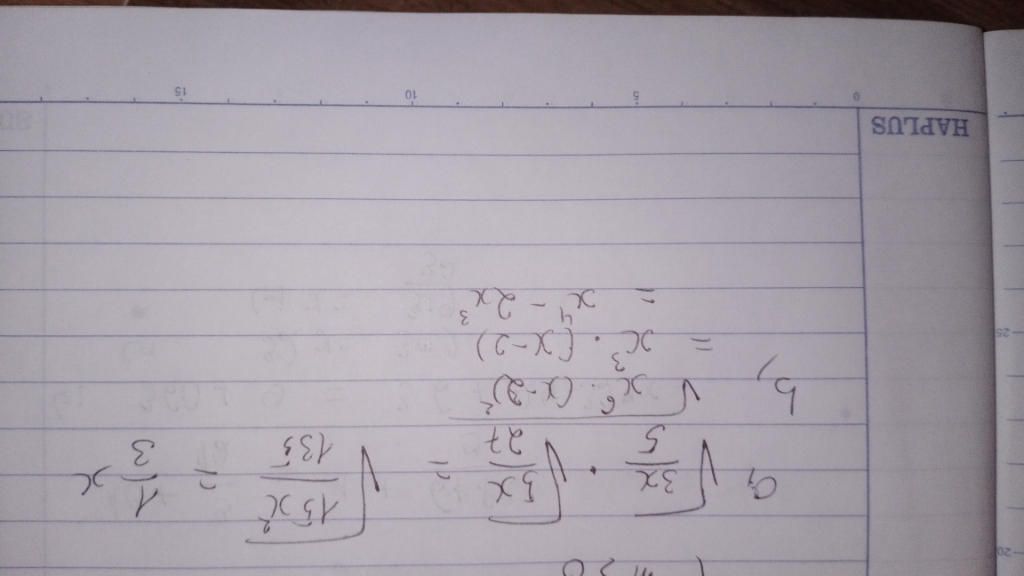 HAPLUS
0 5 10 15
20
a, √(3x/5) · √(5x/27) = √(15x²/135) = 1/3 x
b, √(x⁶ · (x-2)²)
= x³ · (x-2)
= x⁴ - 2x³
25